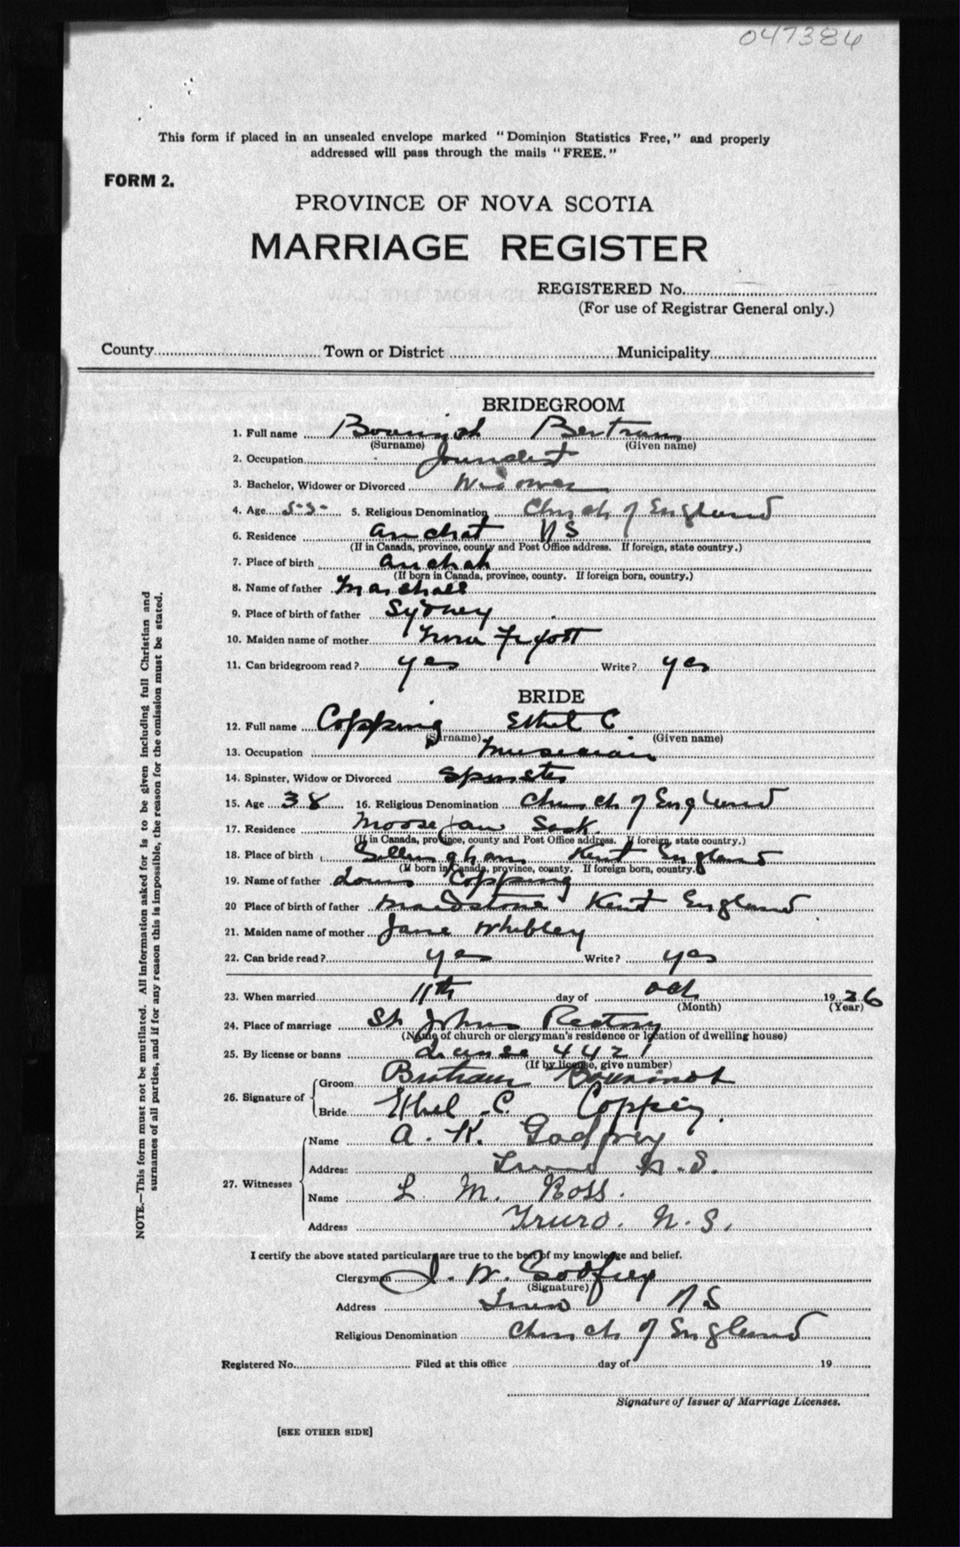 047386
This form if placed in an unsealed envelope marked "Dominion Statistics Free," and properly
addressed will pass through the mails "FREE."
FORM 2.
PROVINCE OF NOVA SCOTIA
MARRIAGE REGISTER
REGISTERED No.
(For use of Registrar General only.)
County Town or District Municipality
BRIDEGROOM
1. Full name Bourinot Bertram
(Surname) (Given name)
2. Occupation Journalist
3. Bachelor, Widower or Divorced Widower
4. Age 5. Religious Denomination Church of England
6. Residence Arichat N S
(If in Canada, province, county and Post Office address. If foreign, state country.)
7. Place of birth Arichat
(If born in Canada, province, county. If foreign born, country.)
8. Name of father Marshall
9. Place of birth of father Sydney
10. Maiden name of mother
11. Can bridegroom read? yes Write? yes
BRIDE
12. Full name Copping Ethel C
(Surname) (Given name)
13. Occupation Musician
14. Spinster, Widow or Divorced Spinster
15. Age 38 16. Religious Denomination Church of England
17. Residence Moose jaw Sask.
(If in Canada, province, county and Post Office address. If foreign, state country.)
18. Place of birth Gillingham Kent England
(If born in Canada, province, county. If foreign born, country.)
19. Name of father Louis Copping
20 Place of birth of father Maidstone Kent England
21. Maiden name of mother Jane Whibley
22. Can bride read? yes Write? yes
23. When married 11th day of Oct 1926
(Month) (Year)
24. Place of marriage St Johns Rectory
(Name of church or clergyman's residence or location of dwelling house)
25. By license or banns License 4421
(If by license, give number)
26. Signature of Groom Bertram Bourinot
Bride Ethel C. Copping
27. Witnesses Name A. K. Godfrey
Address Truro N.S.
Name L. M. Ross.
Address Truro. N.S.
I certify the above stated particulars are true to the best of my knowledge and belief.
Clergyman J. W. Godfrey
(Signature)
Address Truro N S
Religious Denomination Church of England
Registered No. Filed at this office day of 19
Signature of Issuer of Marriage Licenses.
[SEE OTHER SIDE]
NOTE.—This form must not be mutilated. All information asked for is to be given including full Christian and
surnames of all parties, and if for any reason this is impossible, the reason for the omission must be stated.